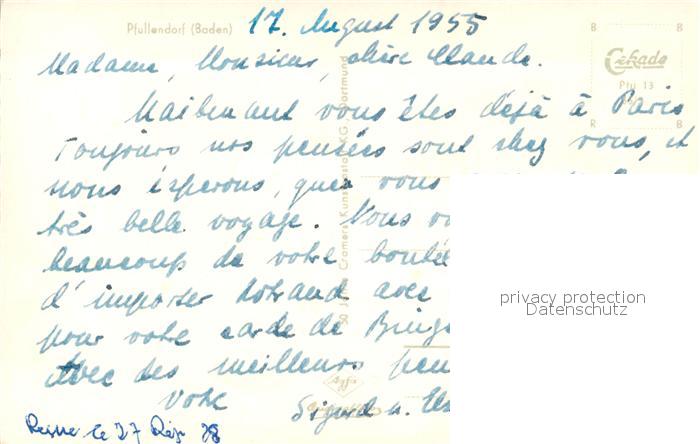 Pfullendorf (Baden)
17. August 1955
Madame, Monsieur, chère Claude.
Maitenant vous êtes déjà à Paris
Toujours nos pensées sont chez vous, et
nous esperons, que vous
très belle voyage. Nous
beaucoup de votre bonté
d'importer avec
pour votre carde de
Avec des meilleurs
Votre Sigurd u.
le 27 78
50 Jahre Cramers Kunstanstalt KG Dortmund
Cekade
Pfu 13
B B
R B
Agfa
privacy protection
Datenschutz